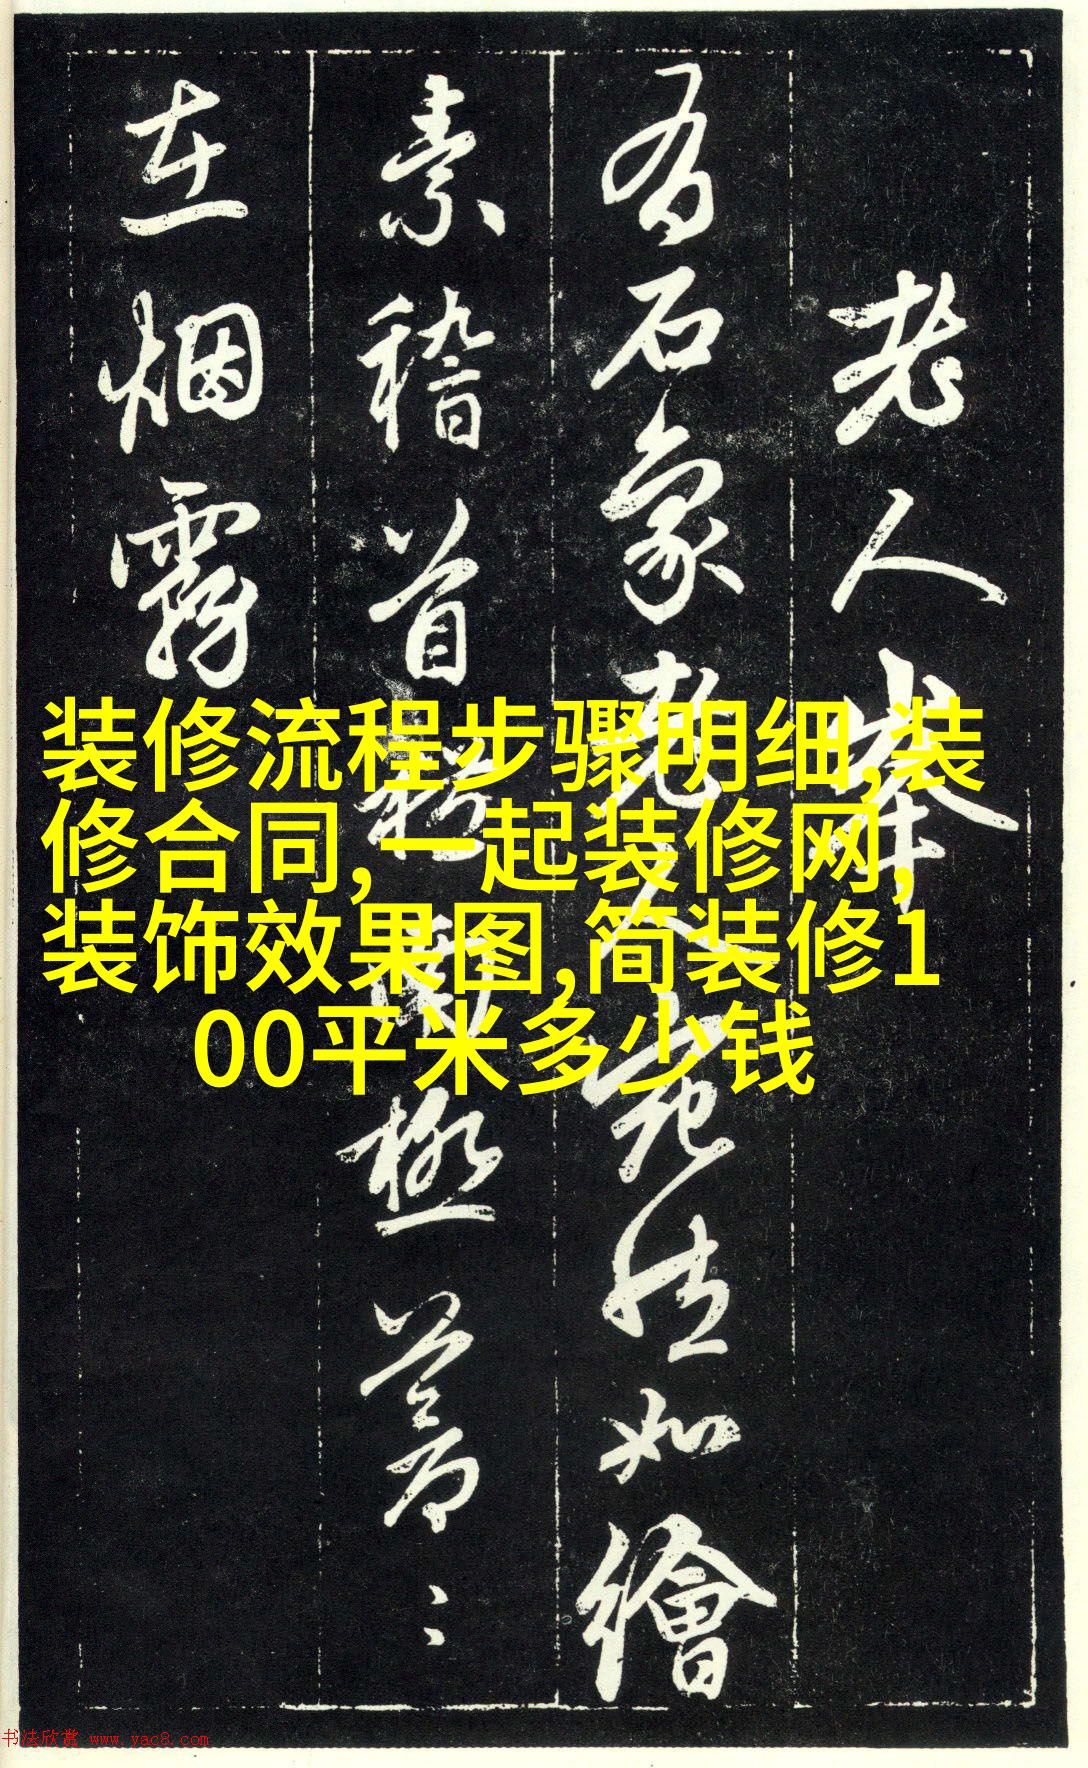 老人峯
有石象老人宛然如繪
素稽首
極蒼蒼
在烟霧
装修流程步骤明细,装
修合同,一起装修网,
装饰效果图,简装修1
00平米多少钱
书法欣赏 www.yac8.com